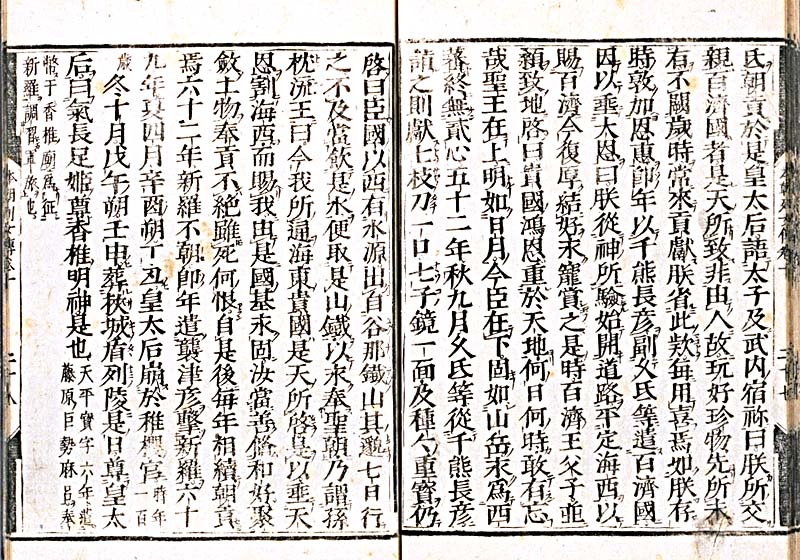 氏朝貢於是皇太后語太子及武内宿祢曰朕所交
親百濟國者是天所致非由人故玩好珍物先所未
有不闕歲時常來貢獻朕省此欵每用喜焉如朕存
時敦加恩惠即年以千熊長彥副久氏等遣百濟國
因以垂大恩曰朕從神所驗始開道路平定海西以
賜百濟今復厚結好永寵賞之是時百濟王父子並
顙致地啓曰貴國鴻恩重於天地何日何時敢有忘
哉聖王在上明如日月今臣在下固如山岳永為西
蕃終無貳心五十二年秋九月久氏等從千熊長彥
詣之則獻七枝刀一口七子鏡一面及種々重寶仍
啓曰臣國以西有水源出自谷那鐵山其邈七日行
之不及當飲是水便取是山鐵以永奉聖朝乃謂孫
枕流王曰今我所通海東貴國是天所啓是以垂天
恩割海西而賜我由是國基永固汝當善脩和好聚
斂土物奉貢不絕雖死何恨自是後每年相續朝貢
焉六十二年新羅不朝即年遣襲津彥擊新羅六十
九年夏四月辛酉朔丁丑皇太后崩於稚櫻宮時年一百
歲冬十月戊午朔壬申葬狹城盾列陵是日尊皇太
后曰氣長足姬尊香椎明神是也天平寶字六年遣
藤原巨勢麻呂奉
幣于香椎廟為征
新羅調習軍旅也
本朝列女傳卷十
二十八